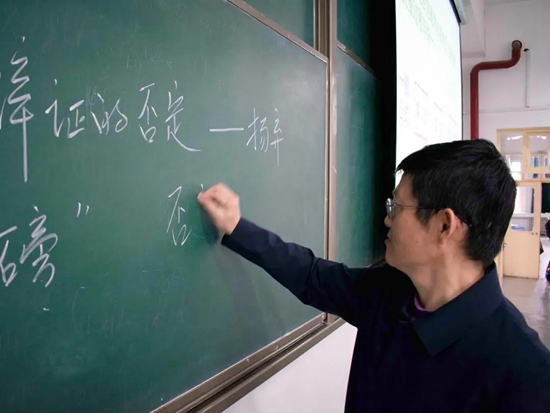 辩证的否定 — 扬弃
石膏” 否